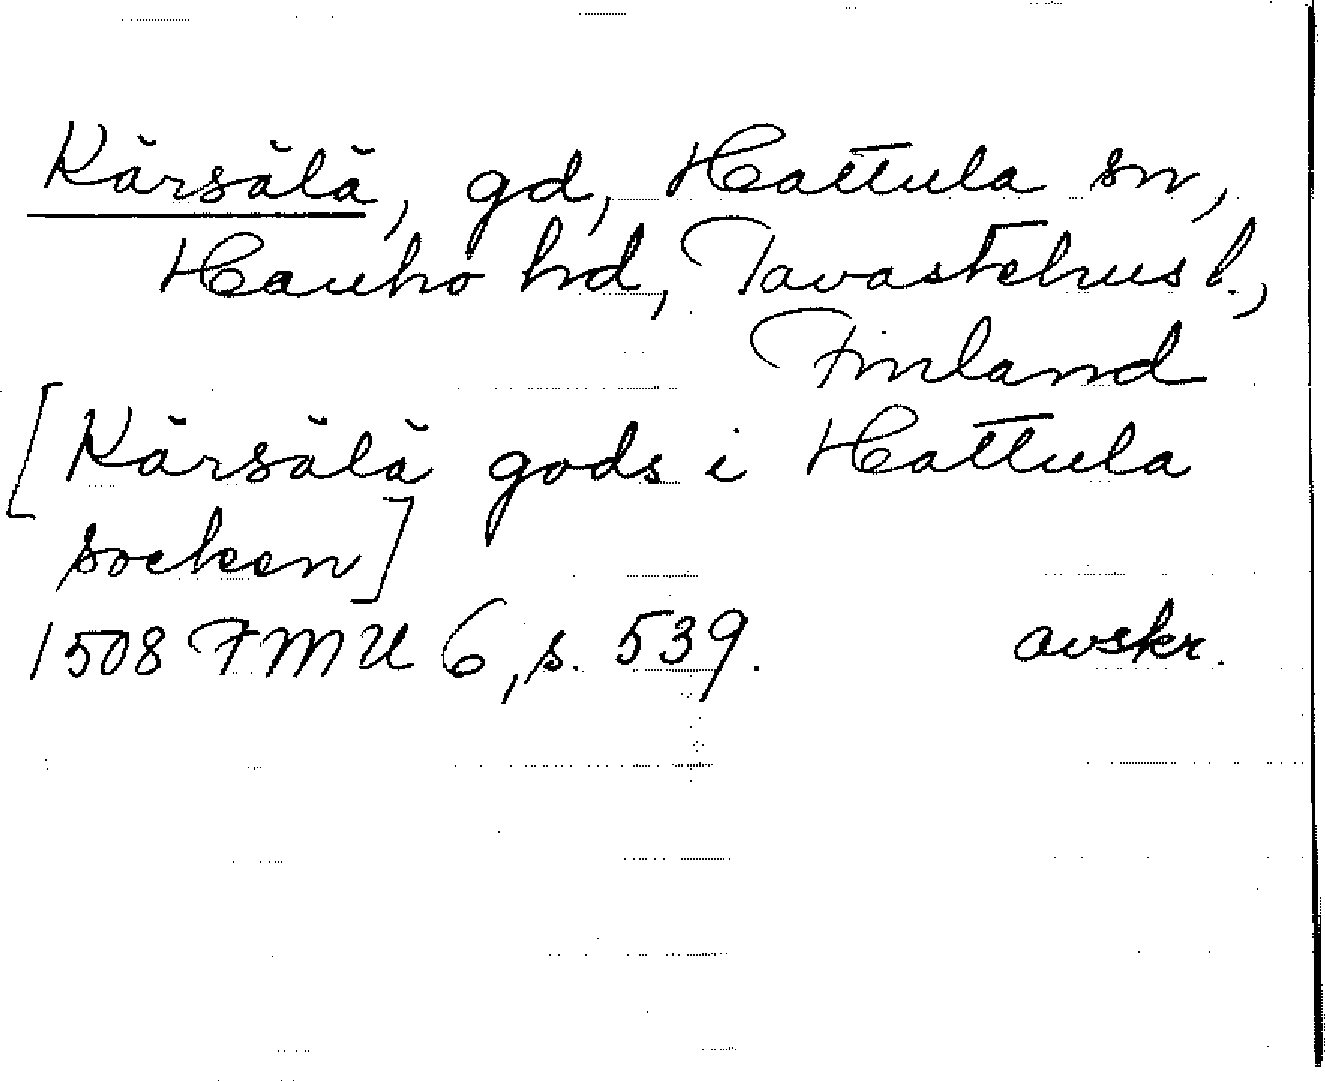 Kärsälä, gd, Hattula sn,
Hauho hd, Tavastehus l.,
Finland
[Kärsälä gods i Hattula
socken]
1508 FMU 6, s. 539. avskr.